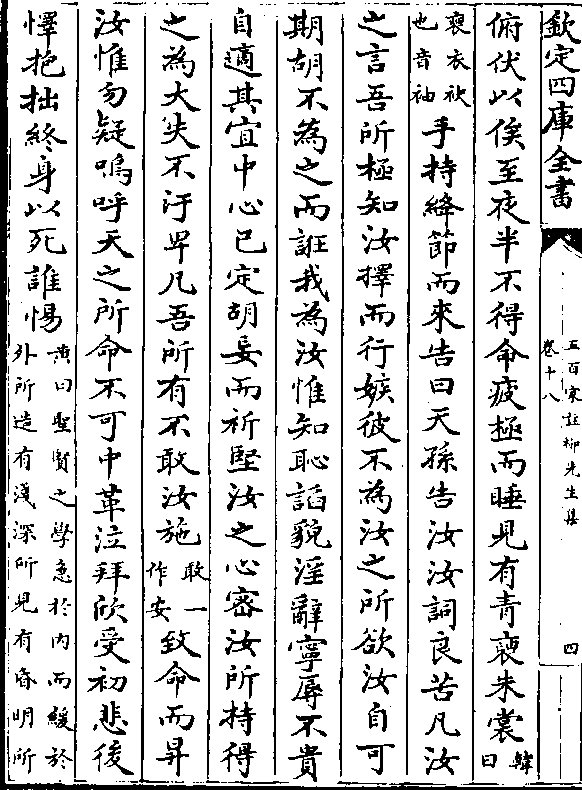 欽定四庫全書
五百家註柳先生集
卷十八
四
俯伏以俟至夜半不得命疲極而睡見有青褏朱裳韓曰
褏衣袂也音袖手持絳節而來告曰天孫告汝汝詞良苦凡汝
之言吾所極知汝擇而行嫉彼不為汝之所欲汝自可
期胡不為之而誑我為汝惟知恥諂貌淫辭寧辱不貴
自適其宜中心已定胡妄而祈堅汝之心審汝所持得
之為大失不汙卑凡吾所有不敢汝施敢一作安致命而昇
汝惟勿疑嗚呼天之所命不可中革泣拜欣受初悲後
懌抱拙終身以死誰惕黃曰聖賢之學急於内而緩於外所造有淺深所見有昏明所